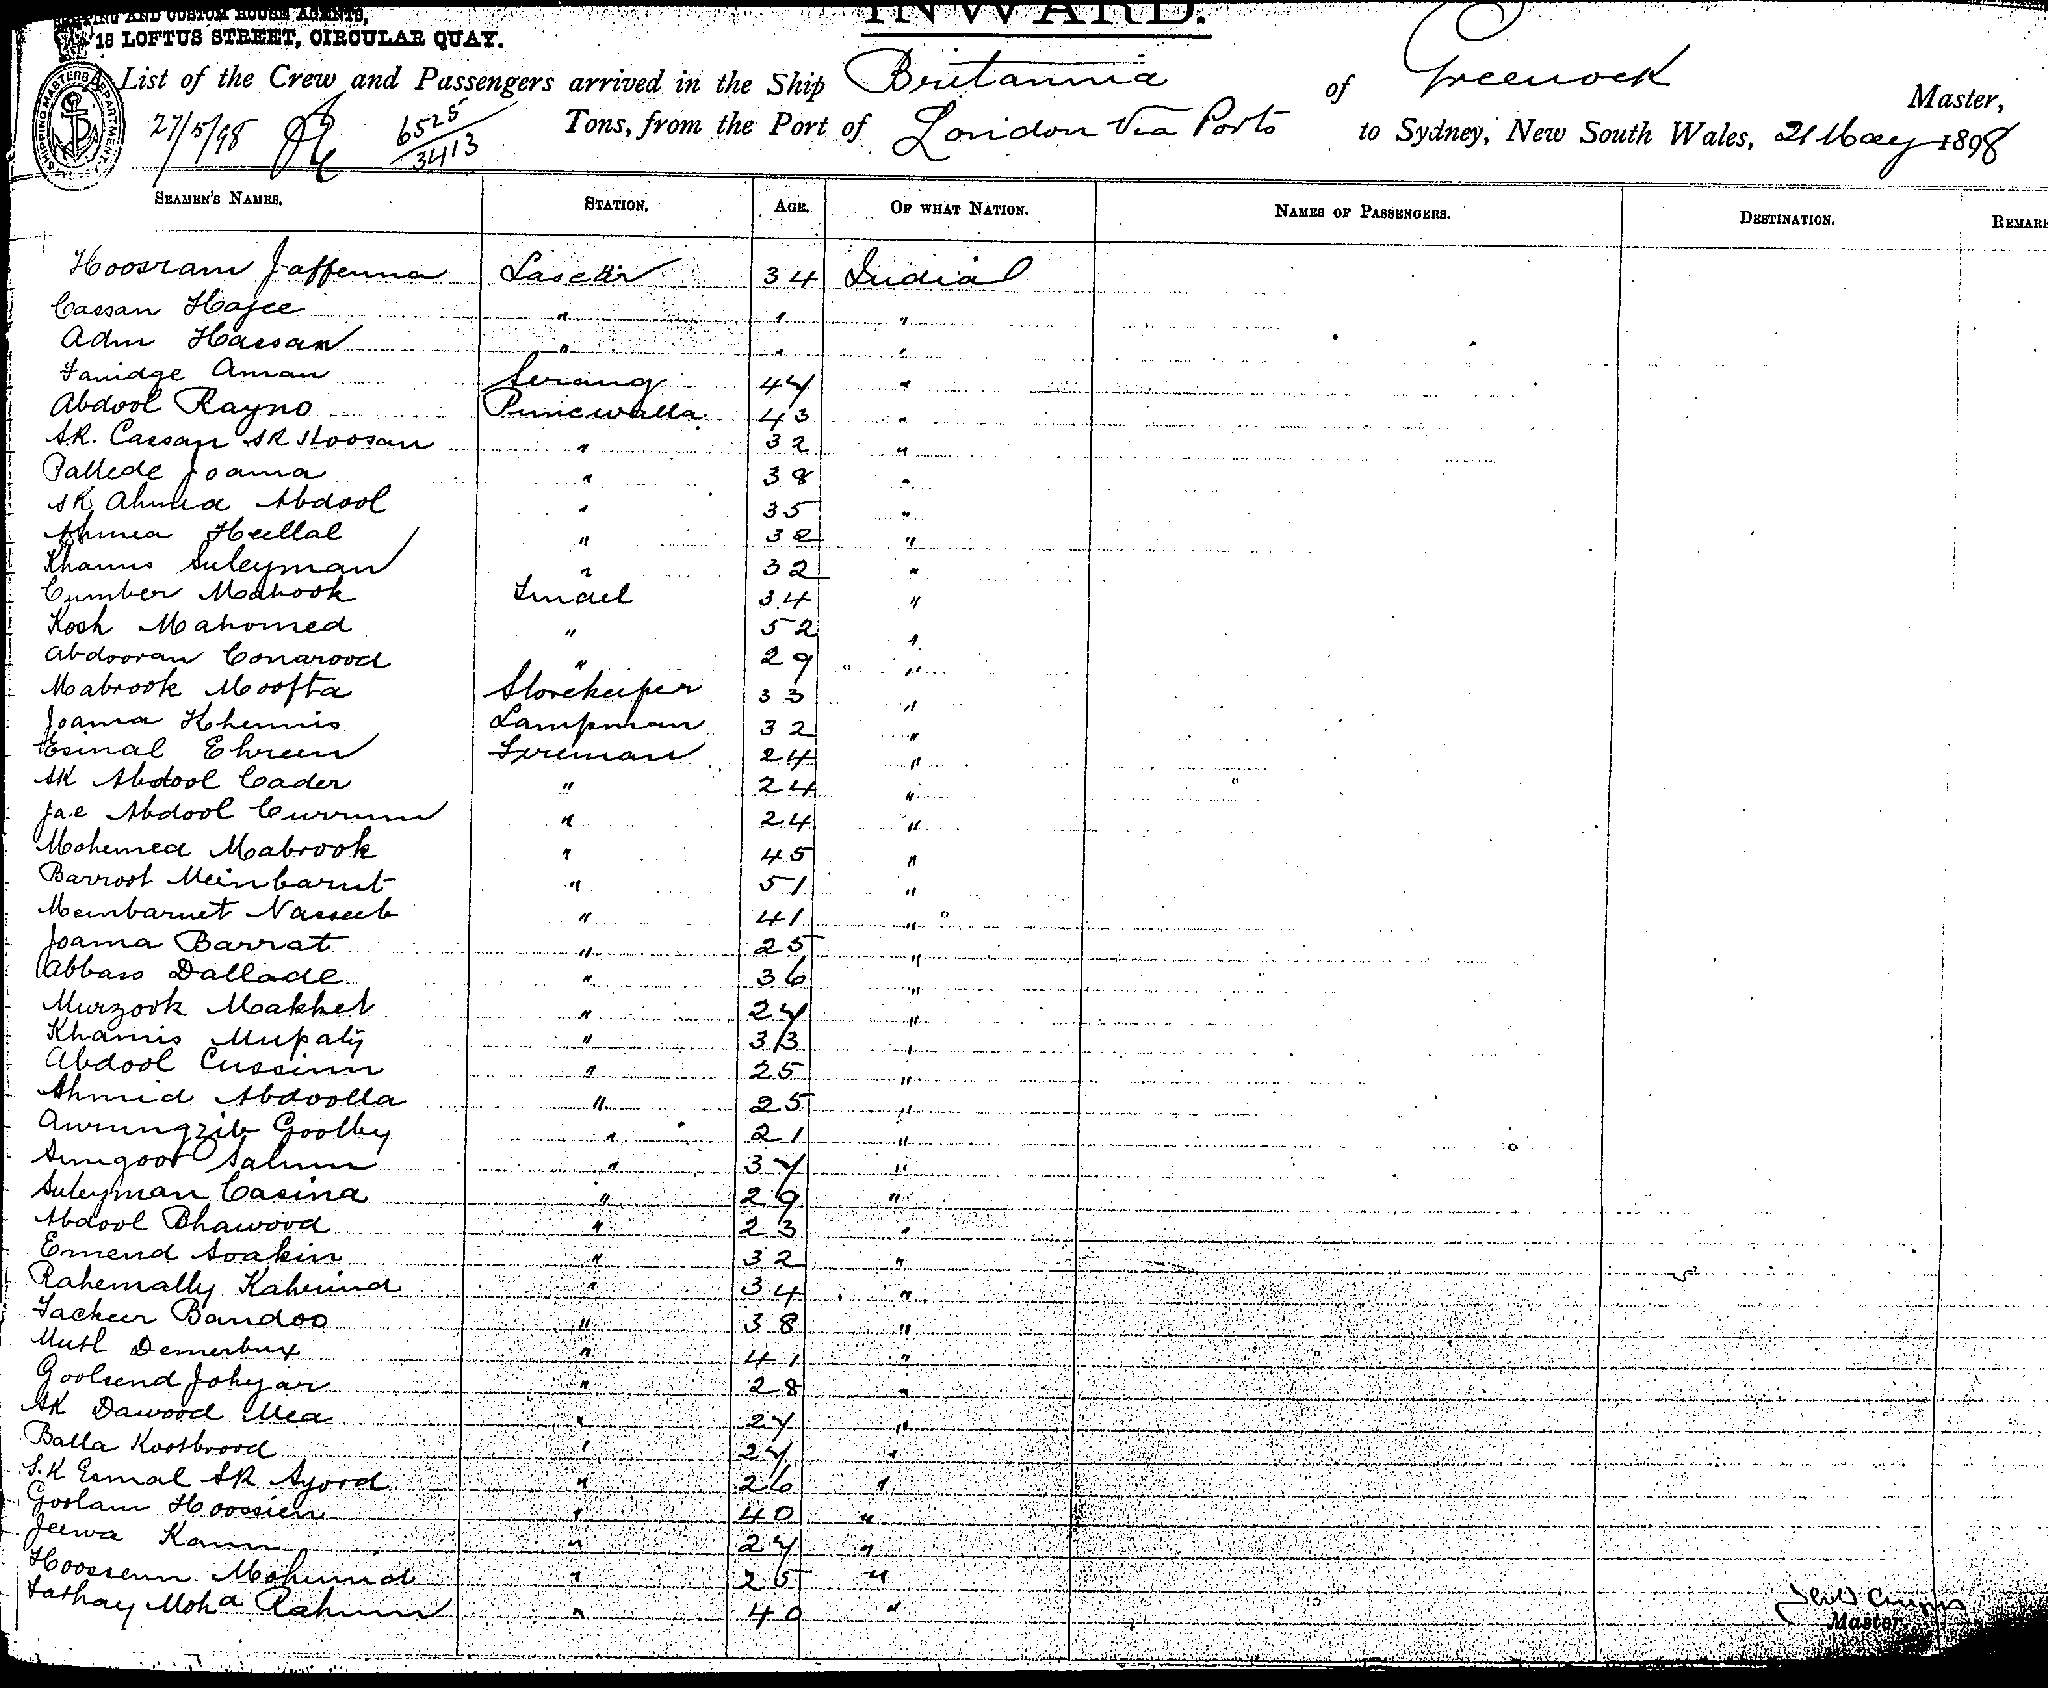 INWARD.
AND CUSTOM HOUSE AGENTS,
18 LOFTUS STREET, CIRCULAR QUAY.
SHIPPING MASTERS DEPARTMENT
A List of the Crew and Passengers arrived in the Ship Britannia of Greenock Master,
27/5/98 6525/3413 Tons, from the Port of London Via Ports to Sydney, New South Wales, 21 May 1898
SEAMEN'S NAMES. STATION. AGE. OF WHAT NATION. NAMES OF PASSENGERS. DESTINATION. REMAR
Hoosram Jafferma Lascar 34 India
Cassan Hajee " " "
Adm Hassan " " "
Faridge Aman Serang 47 "
Abdool Rayno Punewalla 43 "
SK. Cassan SK Hoosan " 32 "
Pallede Joama " 38 "
SK Ahmed Abdool " 35 "
Ahmea Heellal " 32 "
Khamis Suleyman " 32 "
Cumber Mabrook Tindel 34 "
Kosh Mahomed " 52 "
Abdooran Conarood " 29 "
Mabrook Moofta Storekeeper 33 "
Joama Khemis Lampman 32 "
Esinal Ebreen Fireman 24 "
SK Abdool Cader " 24 "
Jae Abdool Currum " 24 "
Mohemed Mabrook " 45 "
Barroot Meinbarut " 51 "
Meinbarut Nasseeb " 41 "
Joama Barrat " 25 "
Abbass Dallade " 36 "
Murzook Makket " 27 "
Khamis Mupaty " 33 "
Abdool Cussim " 25 "
Ahmid Abdoolla " 25 "
Aurungzib Goolby " 21 "
Sungoor Salum " 37 "
Suleyman Casina " 29 "
Abdool Bhawood " 23 "
Emend Soakin " 32 "
Rahemally Kahumd " 34 "
Fackeer Bandoo " 38 "
Mutl Demerbux " 41 "
Goolsend Johyar " 28 "
SK Dawood Mea " 27 "
Balla Kootbrood " 27 "
S.K Esmal SK Ajood " 26 "
Goolam Hoossien " 40 "
Jeewa Kamm " 27 "
Hoossenn Mohumed " 25 "
Fathay Moha Rahum " 40 "
Master